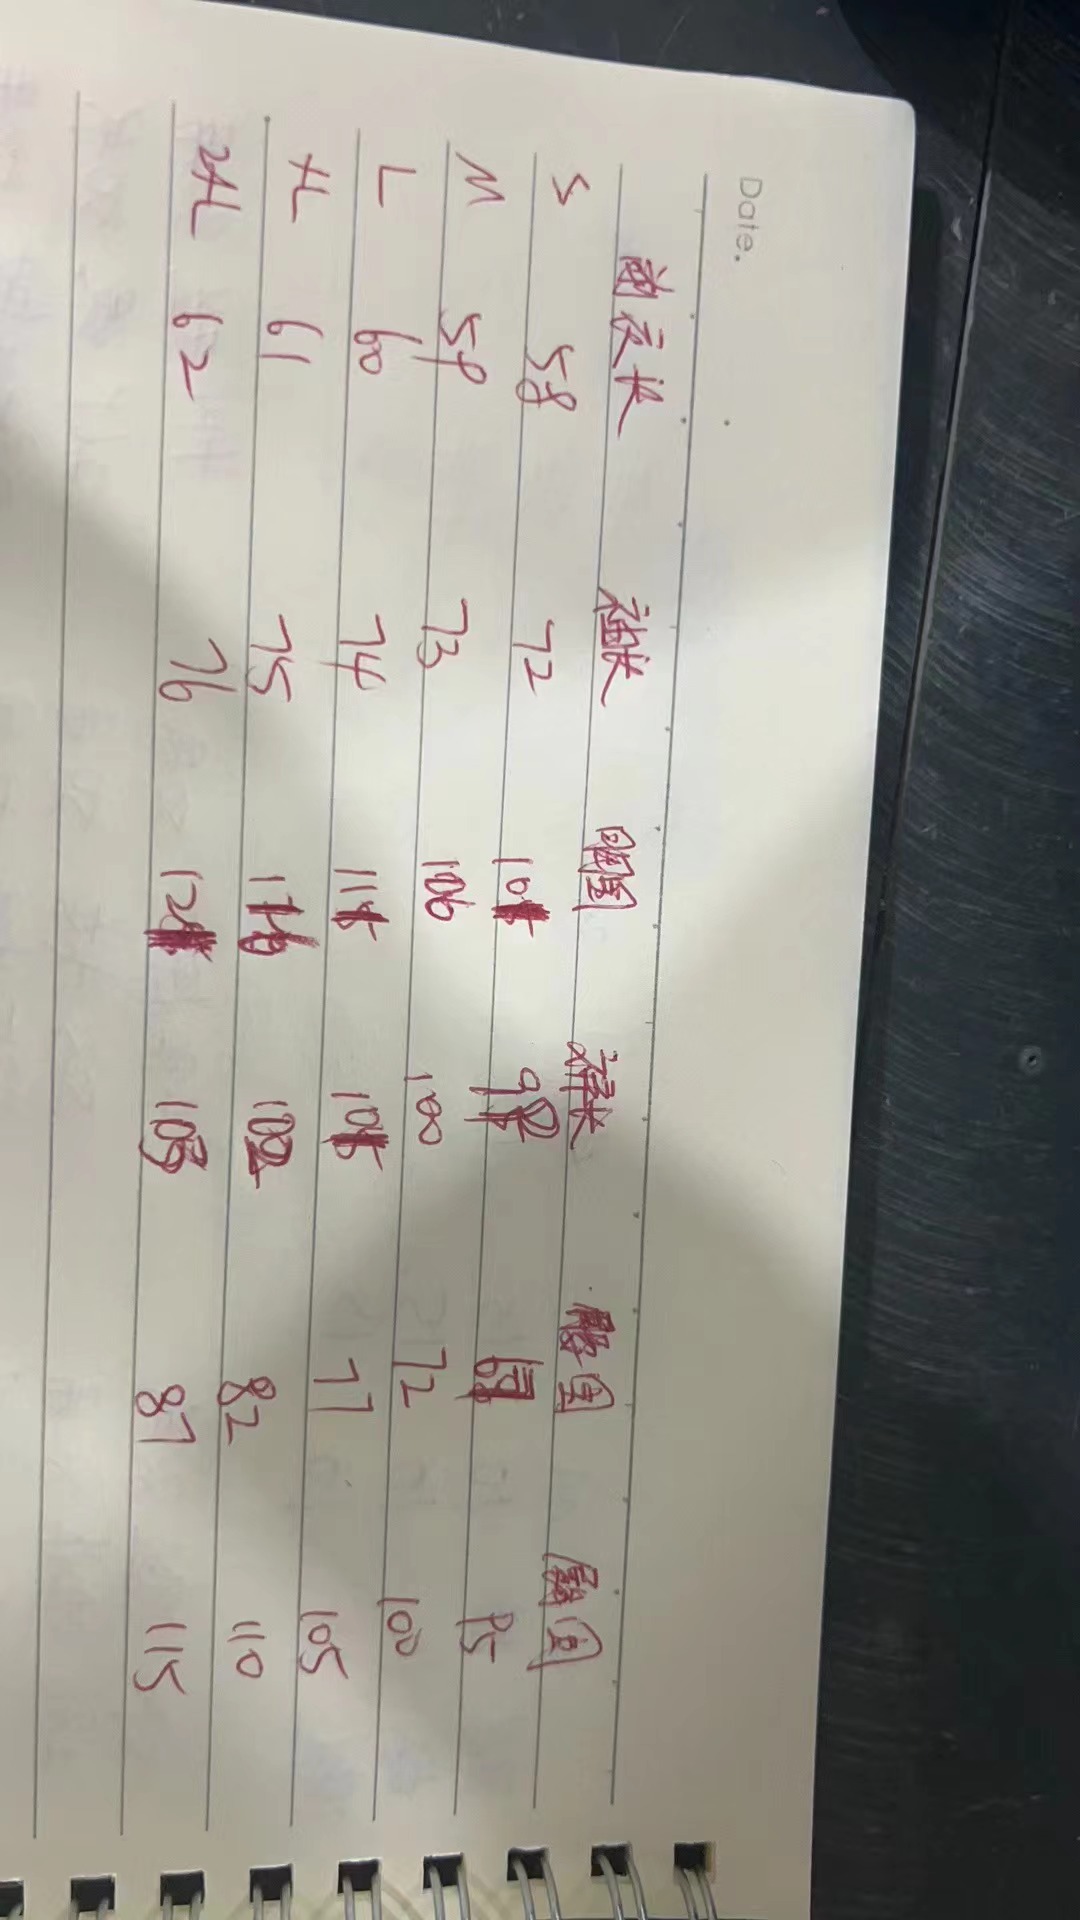 Date.
前衣长 袖长 胸围 裤长 腰围 臀围
S 58 72 95
M 59 73 106 100 72 100
L 60 74 77 105
XL 61 75 102 82 110
2XL 62 76 103 87 115